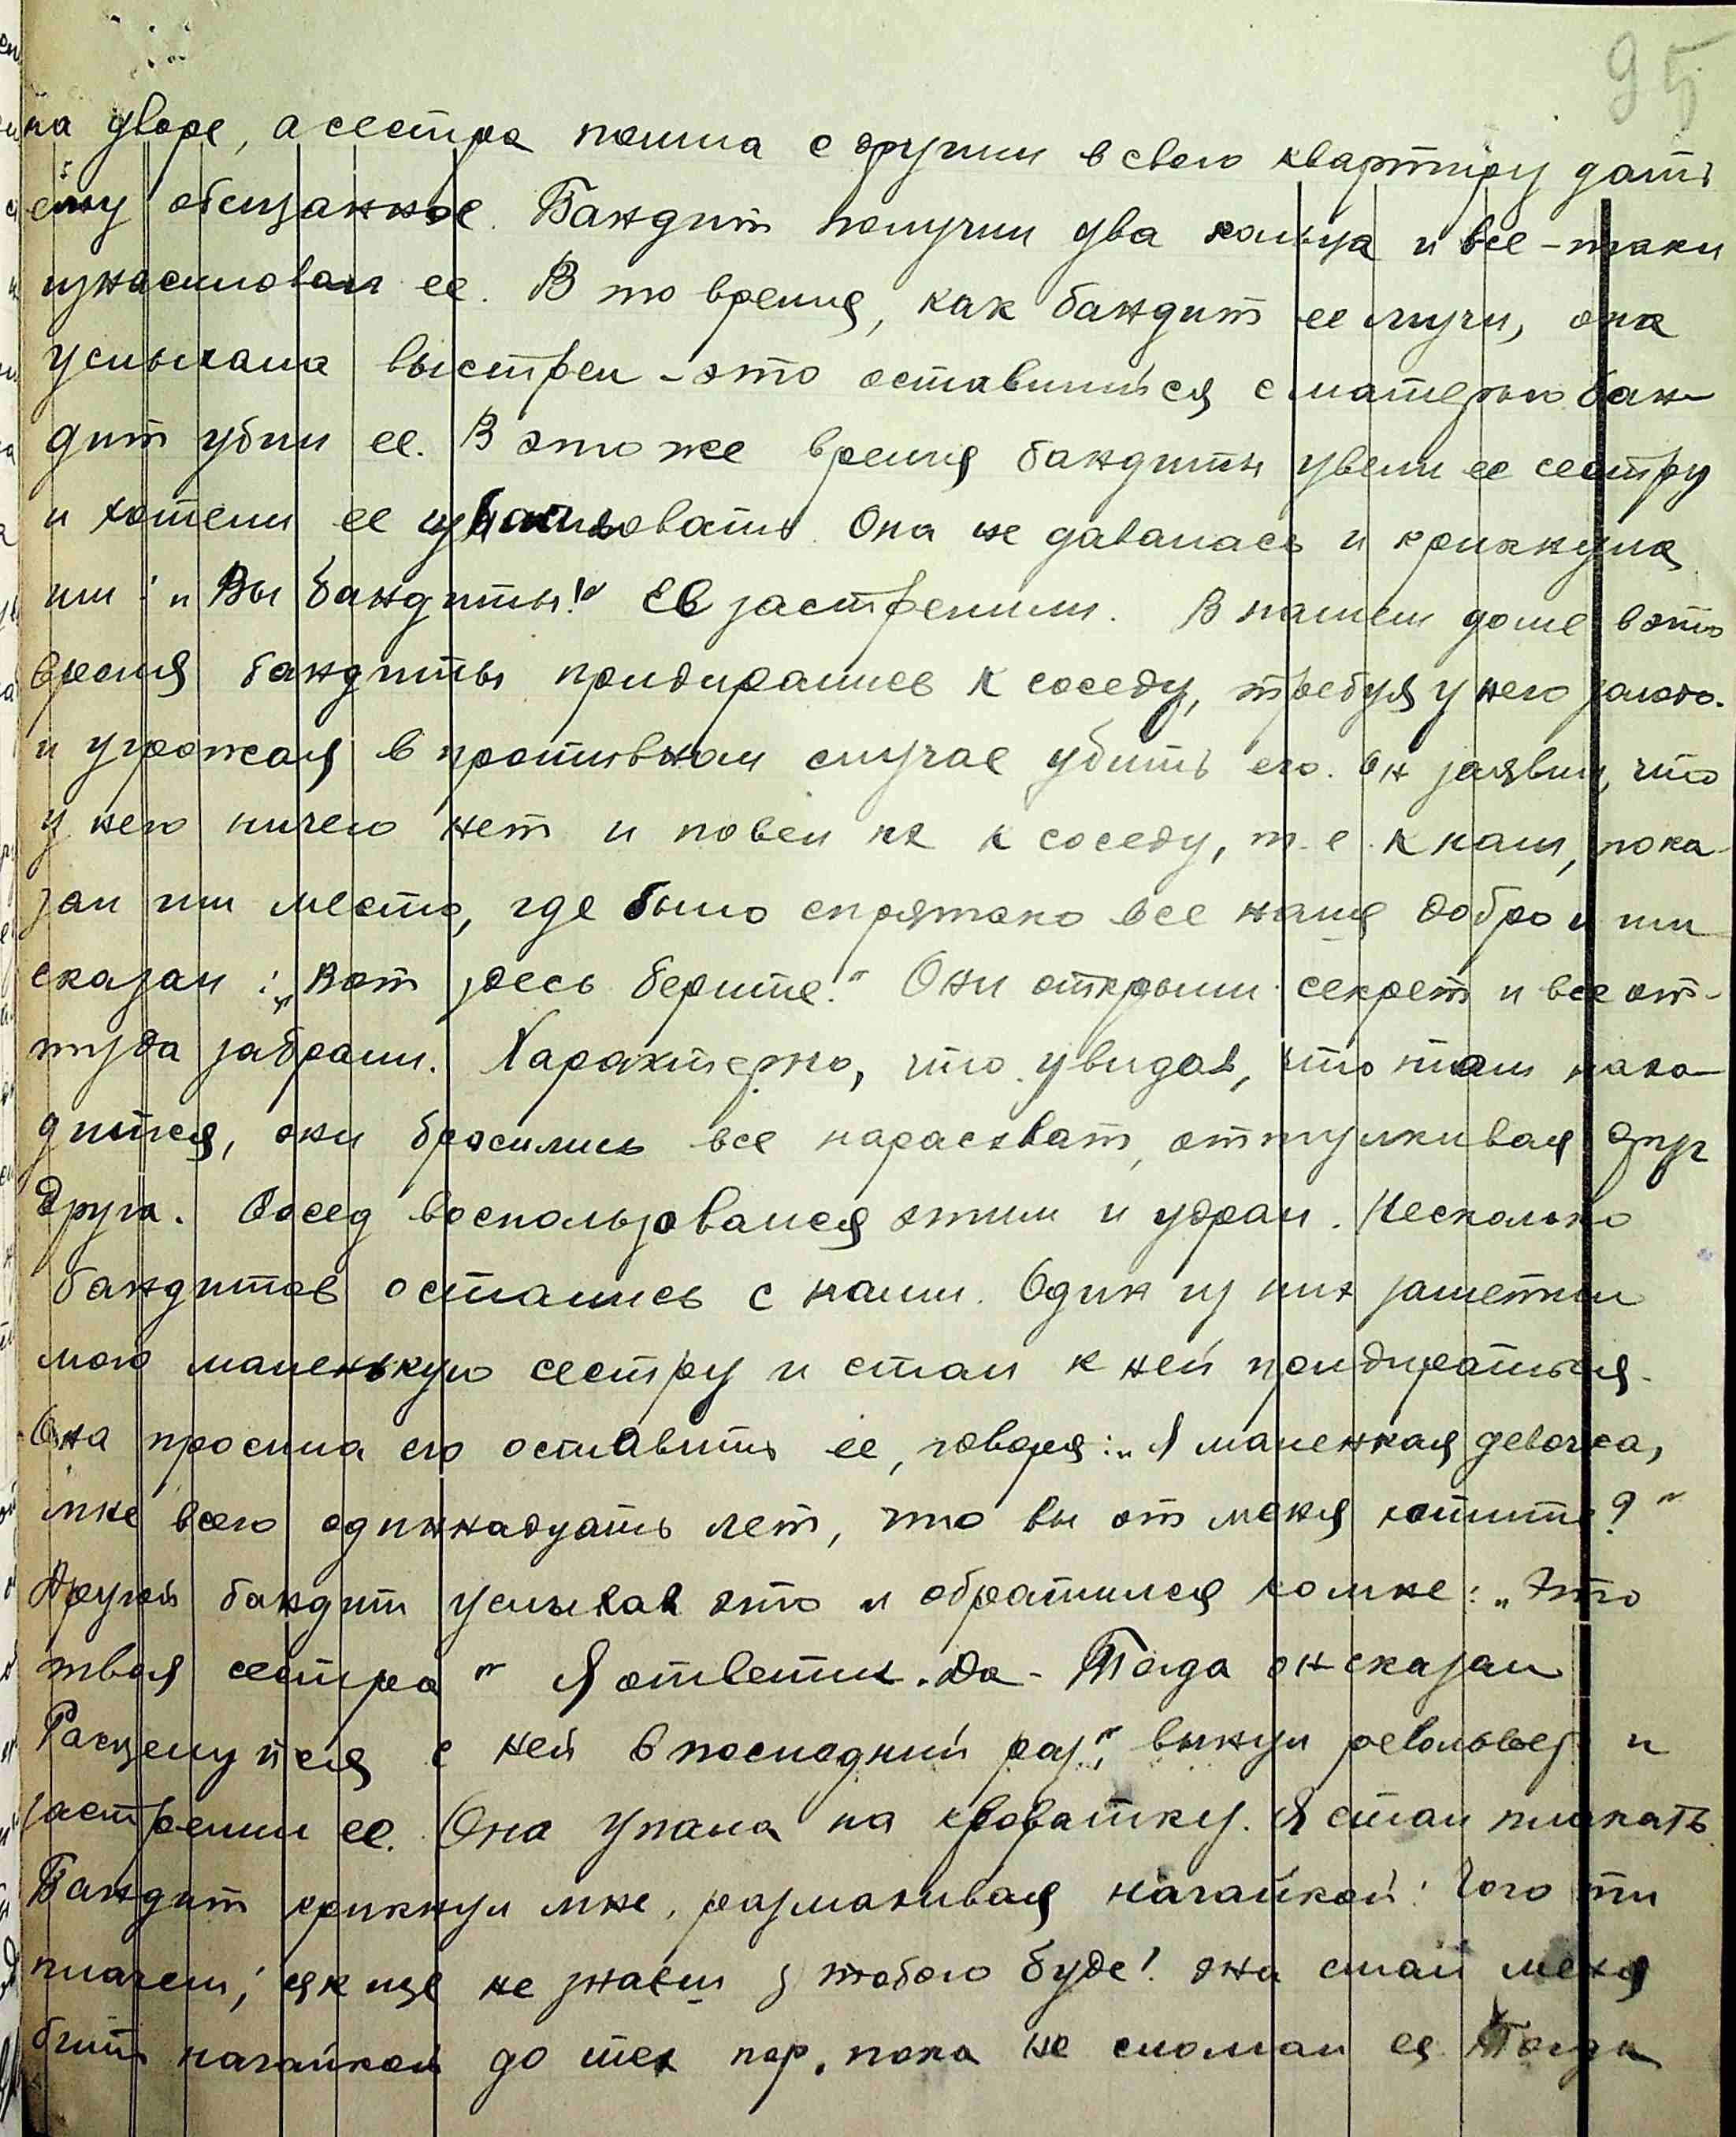 95
на дворе, а сестра пошла с другим в свою квартиру дать
ему обещанное. Бандит получил два кольца и все-таки
изнасиловал ее. В то время, как бандит ее мучил, она
услыхала выстрел - это оставшийся с матерью бан-
дит убил ее. В это же время бандиты увели ее сестру
и хотели ее изнасиловать. Она не давалась и крикнула
им: „Вы бандиты!" Ее застрелили. В нашем доме в это
время бандиты придирались к соседу, требуя у него золото.
и угрожая в противном случае убить его. Он заявил, что
у него ничего нет и повел их к соседу, т.е. к нам, пока-
зал им место, где было спрятано все наше добро и им
сказал: „Вот здесь берите!" Они открыли секрет и все от-
туда забрали. Характерно, что увидав, что там нахо-
дится, они бросились все нарасхват, отталкивая друг
друга. Сосед воспользовался этим и удрал. Несколько
бандитов остались с нами. Один из них заметил
мою маленькую сестру и стал к ней придираться.
Она просила его оставить ее, говоря: „Я маленкая девочка,
мне всего одиннадцать лет, что вы от меня хотите?"
Другой бандит услыхав это и обратился ко мне: „Это
твоя сестра" Я ответил. Да - Тогда он сказал
Расцелуйся с ней в последний раз", вынул револьвер и
застрелил ее. Она упала на кроватку. Я стал плакать
Бандит крикнул мне, размахивая нагайкой: Чого ти
плачеш, як ще не знаеш з тобою буде! они стал меня
бить нагайкой до тех пор, пока не сломал ее. Тогда